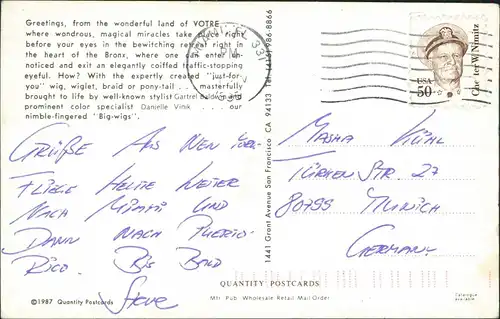 Greetings, from the wonderful land of VOTRE
where wondrous, magical miracles take place right
before your eyes in the bewitching retreat right in
the heart of the Bronx, where one can enter un-
noticed and exit an elegantly coiffed traffic-stopping
eyeful. How? With the expertly created "just-for-
you" wig, wiglet, braid or pony-tail . . . masterfully
brought to life by well-known stylist Gartrel Baldwin and
prominent color specialist Danielle Vinik . . . our
nimble-fingered "Big-wigs".
GRÜßE AUS NEW YORK.
FLIEGE HEUTE WEITER
NACH MIAMI UND
DANN NACH PUERTO-
RICO. BIS BALD
Steve
©1987 Quantity Postcards
1441 Grant Avenue San Francisco CA 94133 Tel (415) 986-8866
MIAMI, FL 331
PM
USA
50
Chester W. Nimitz
MASHA KÜHL
TÜRKEN STR. 27
80799 MUNICH
GERMANY
QUANTITY POSTCARDS
Mfr. Pub. Wholesale Retail Mail Order
Catalogue
available